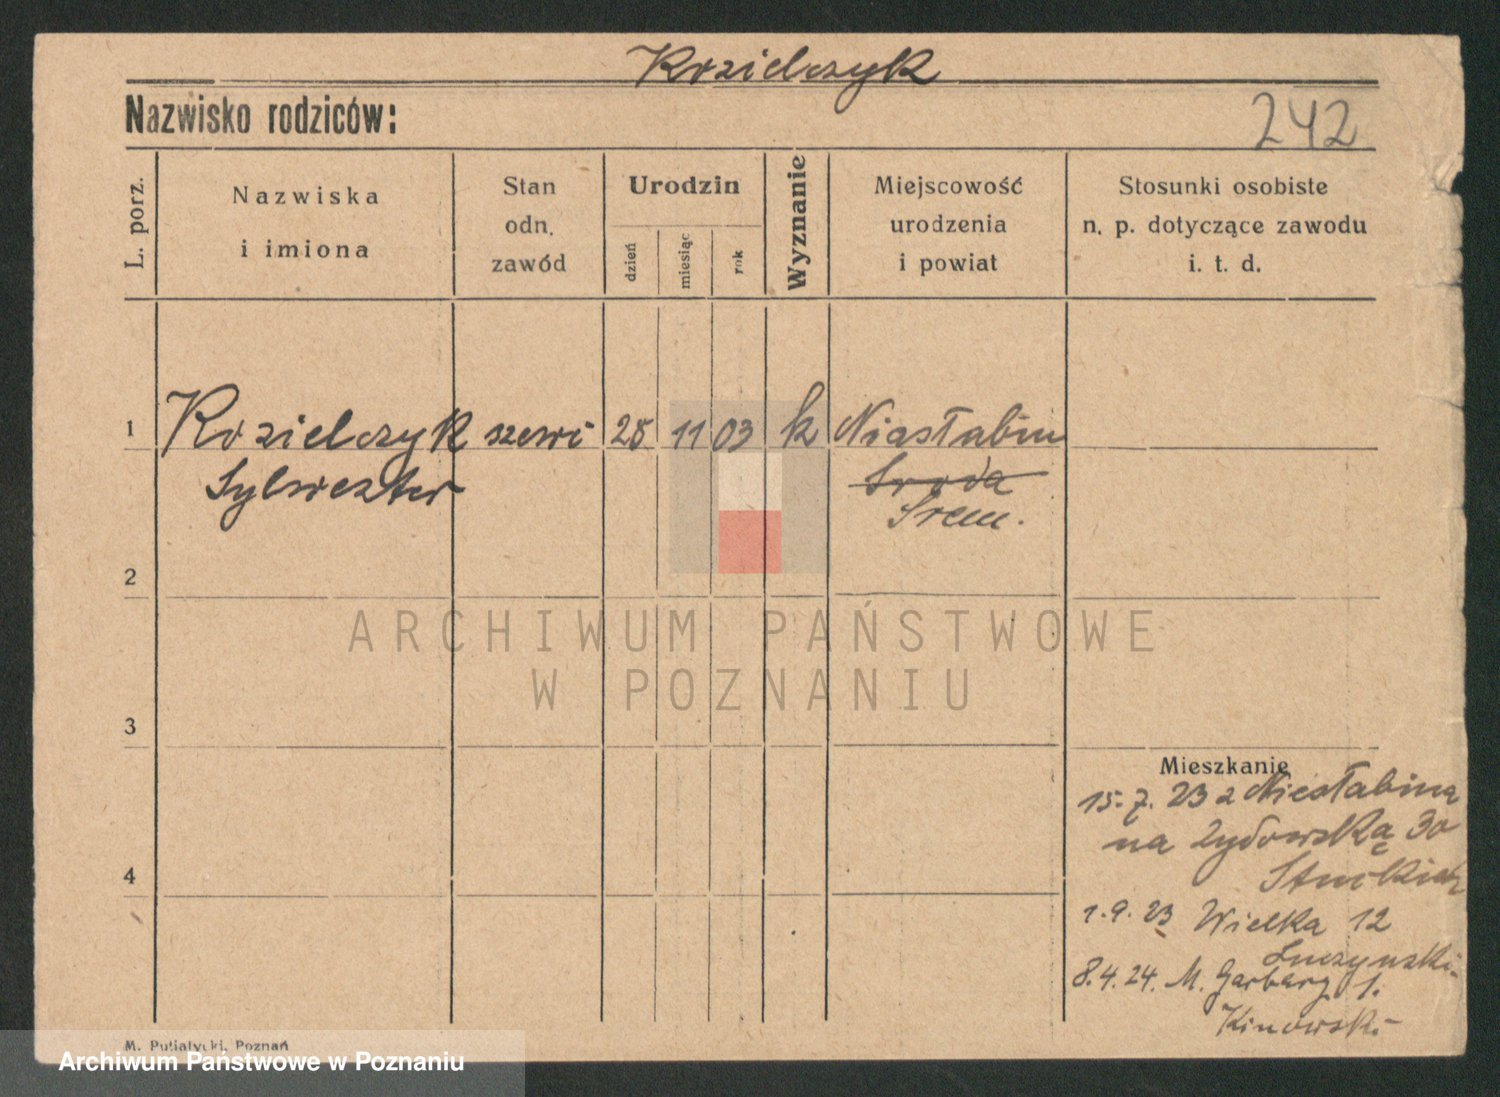 Kozielczyk
Nazwisko rodziców:
242
L. porz.
Nazwiska
i imiona
Stan
odn.
zawód
Urodzin
dzień
miesiąc
rok
Wyznanie
Miejscowość
urodzenia
i powiat
Stosunki osobiste
n. p. dotyczące zawodu
i. t. d.
1 Kozielczyk szewc 28 11 03 k Niasłabin
Sylwester Środa
Śrem.
2
ARCHIWUM PAŃSTWOWE
W POZNANIU
3
Mieszkanie
15.7.23 z Niesłabina
na Żydowską 30
4
1.9.23 Wielka 12
8.4.24. M. Garbary 1.
Kinowski
M. Putiatycki, Poznań
Archiwum Państwowe w Poznaniu